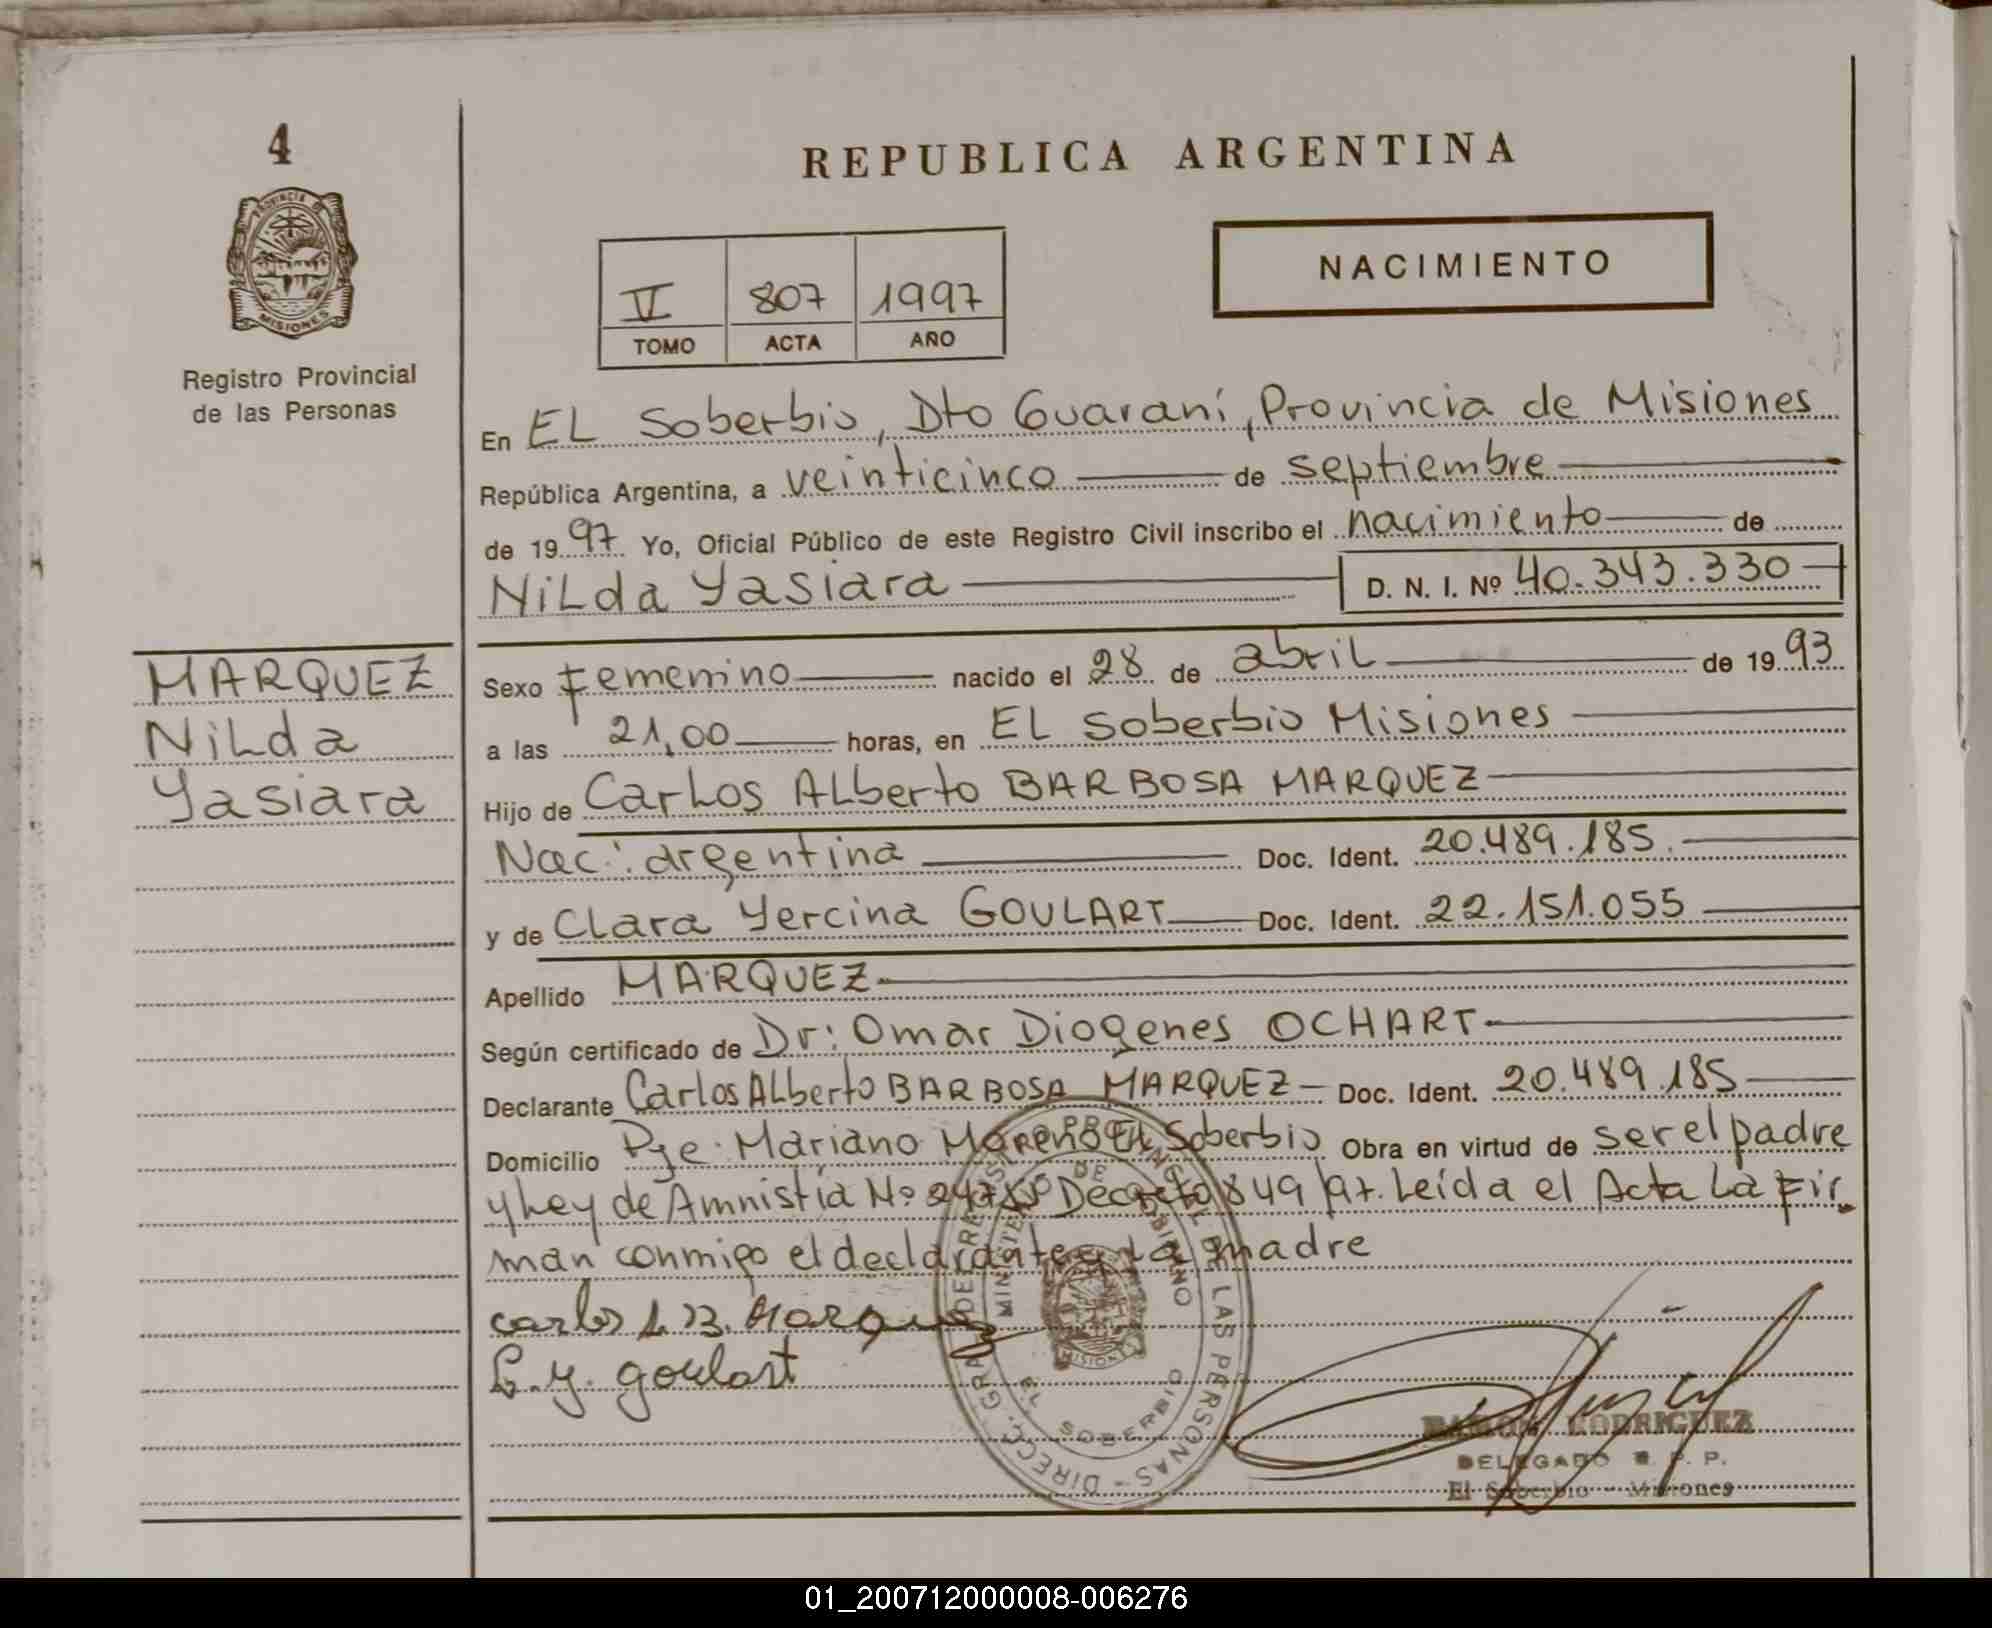 4
REPUBLICA ARGENTINA
PROVINCIA DE
MISIONES
Registro Provincial
de las Personas
V 807 1997
TOMO ACTA AÑO
NACIMIENTO
En EL Soberbio, Dto Guaraní, Provincia de Misiones
República Argentina, a veinticinco de septiembre
de 1997 Yo, Oficial Público de este Registro Civil inscribo el nacimiento de
Nilda Yasiara D. N. I. Nº 40.343.330
MARQUEZ
Nilda
Yasiara
Sexo Femenino nacido el 28 de abril de 1993
a las 21,00 horas, en EL Soberbio Misiones
Hijo de Carlos Alberto BARBOSA MARQUEZ
Nac: argentina Doc. Ident. 20.489.185.
y de Clara Yercina GOULART Doc. Ident. 22.151.055
Apellido MARQUEZ
Según certificado de Dr: Omar Diogenes OCHART
Declarante Carlos Alberto BARBOSA MARQUEZ Doc. Ident. 20.489.185
Domicilio Pje. Mariano Moreno EL Soberbio Obra en virtud de ser el padre
y Ley de Amnistía Nº Decreto 849/97. Leída el Acta La Fir
man conmigo el declarante y la madre
Carlos A. B. Marquez
C. Y. goulart
DIRECC. GRAL. DE REGISTRO PROVINCIAL DE LAS PERSONAS
MINISTERIO DE GOBIERNO
MISIONES
EL SOBERBIO
RAMON RODRIGUEZ
DELEGADO R. P. P.
El Soberbio - Misiones
01_200712000008-006276